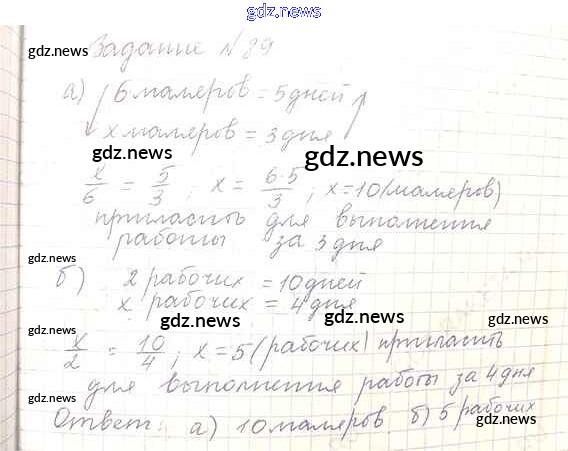 gdz.news
gdz.news
Задание №89
gdz.news
а) 6 маляров = 5 дней
х маляров = 3 дня
gdz.news
gdz.news
х/6 = 5/3 ; х = 6·5/3 ; х = 10 (маляров)
пригласить для выполнения
работы за 3 дня
gdz.news
б) 2 рабочих = 10 дней
х рабочих = 4 дня
gdz.news
gdz.news
gdz.news
х/2 = 10/4 ; х = 5 (рабочих) пригласить
для выполнения работы за 4 дня
gdz.news
Ответ: а) 10 маляров. б) 5 рабочих
gdz.news
gdz.news